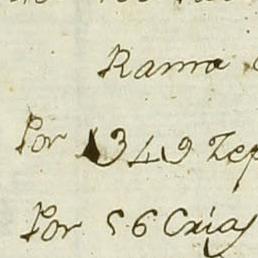 Ramo
Por 1349 Zep
Por 56 Crias